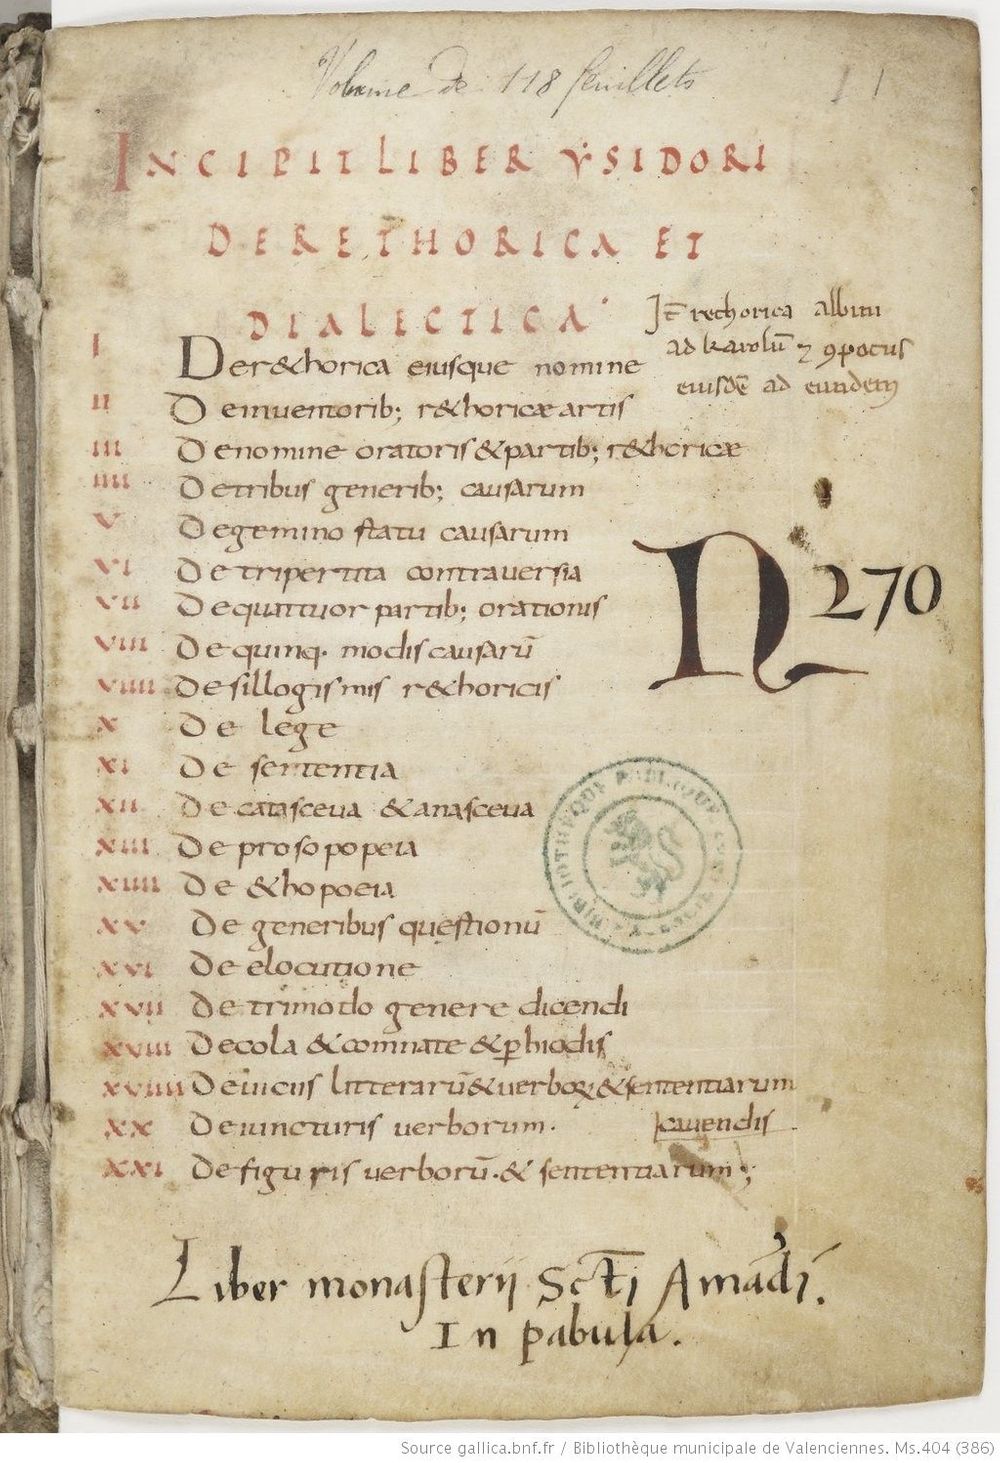 Volume de 118 feuillets
1
INCIPIT LIBER YSIDORI
DE RETHORICA ET
DIALECTICA
It rethorica albini
ad karolū ⁊ ꝯpotus
eiusdē ad eundem
I De r&horica eiusque nomine
II De inuentorib; r&horicæ artis
III De nomine oratoris & partib; r&horicæ
IIII De tribus generib; causarum
V De gemino statu causarum
VI De tripertita contrauersia
VII De quattuor partib; orationis
VIII De quinq· modis causarū
VIIII De sillogismis r&horicis
X De lege
XI De sententia
XII De catasceua & anasceua
XIII De prosopopeia
XIIII De &hopoeia
XV De generibus questionū
XVI De elocutione
XVII De trimodo genere dicendi
XVIII De cola & commate & ꝑhiodis
XVIIII De uiciis litterarū & uerboꝝ & sententiarum
cauendis
XX De iuncturis uerborum.
XXI De figuris uerborū. & sententiarum;
N 270
BIBLIOTHÈQUE PUBLIQUE
Liber monasterij Scti Amādi.
In pabula.
Source gallica.bnf.fr / Bibliothèque municipale de Valenciennes. Ms.404 (386)